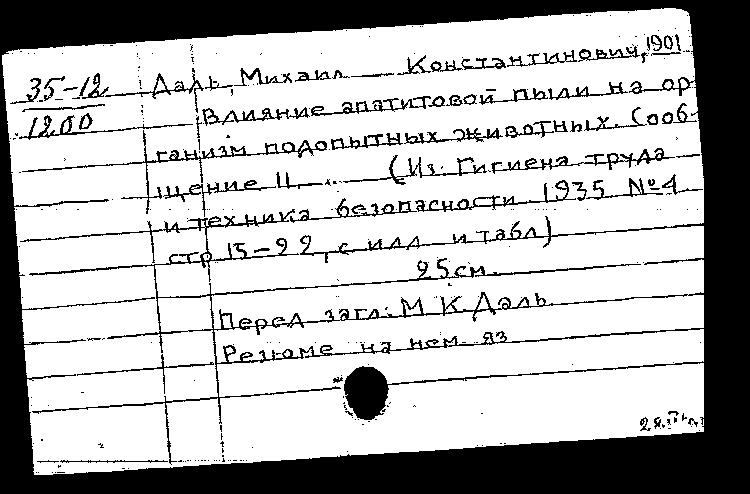 35-12
1200
Даль, Михаил Константинович, 1901
Влияние апатитовой пыли на ор-
ганизм подопытных животных. Сооб-
щение II.... (Из: Гигиена труда
и техника безопасности 1935 №4
стр 15-22, с илл и табл)
25см.
Перед загл: М К Даль
Резюме на нем. яз